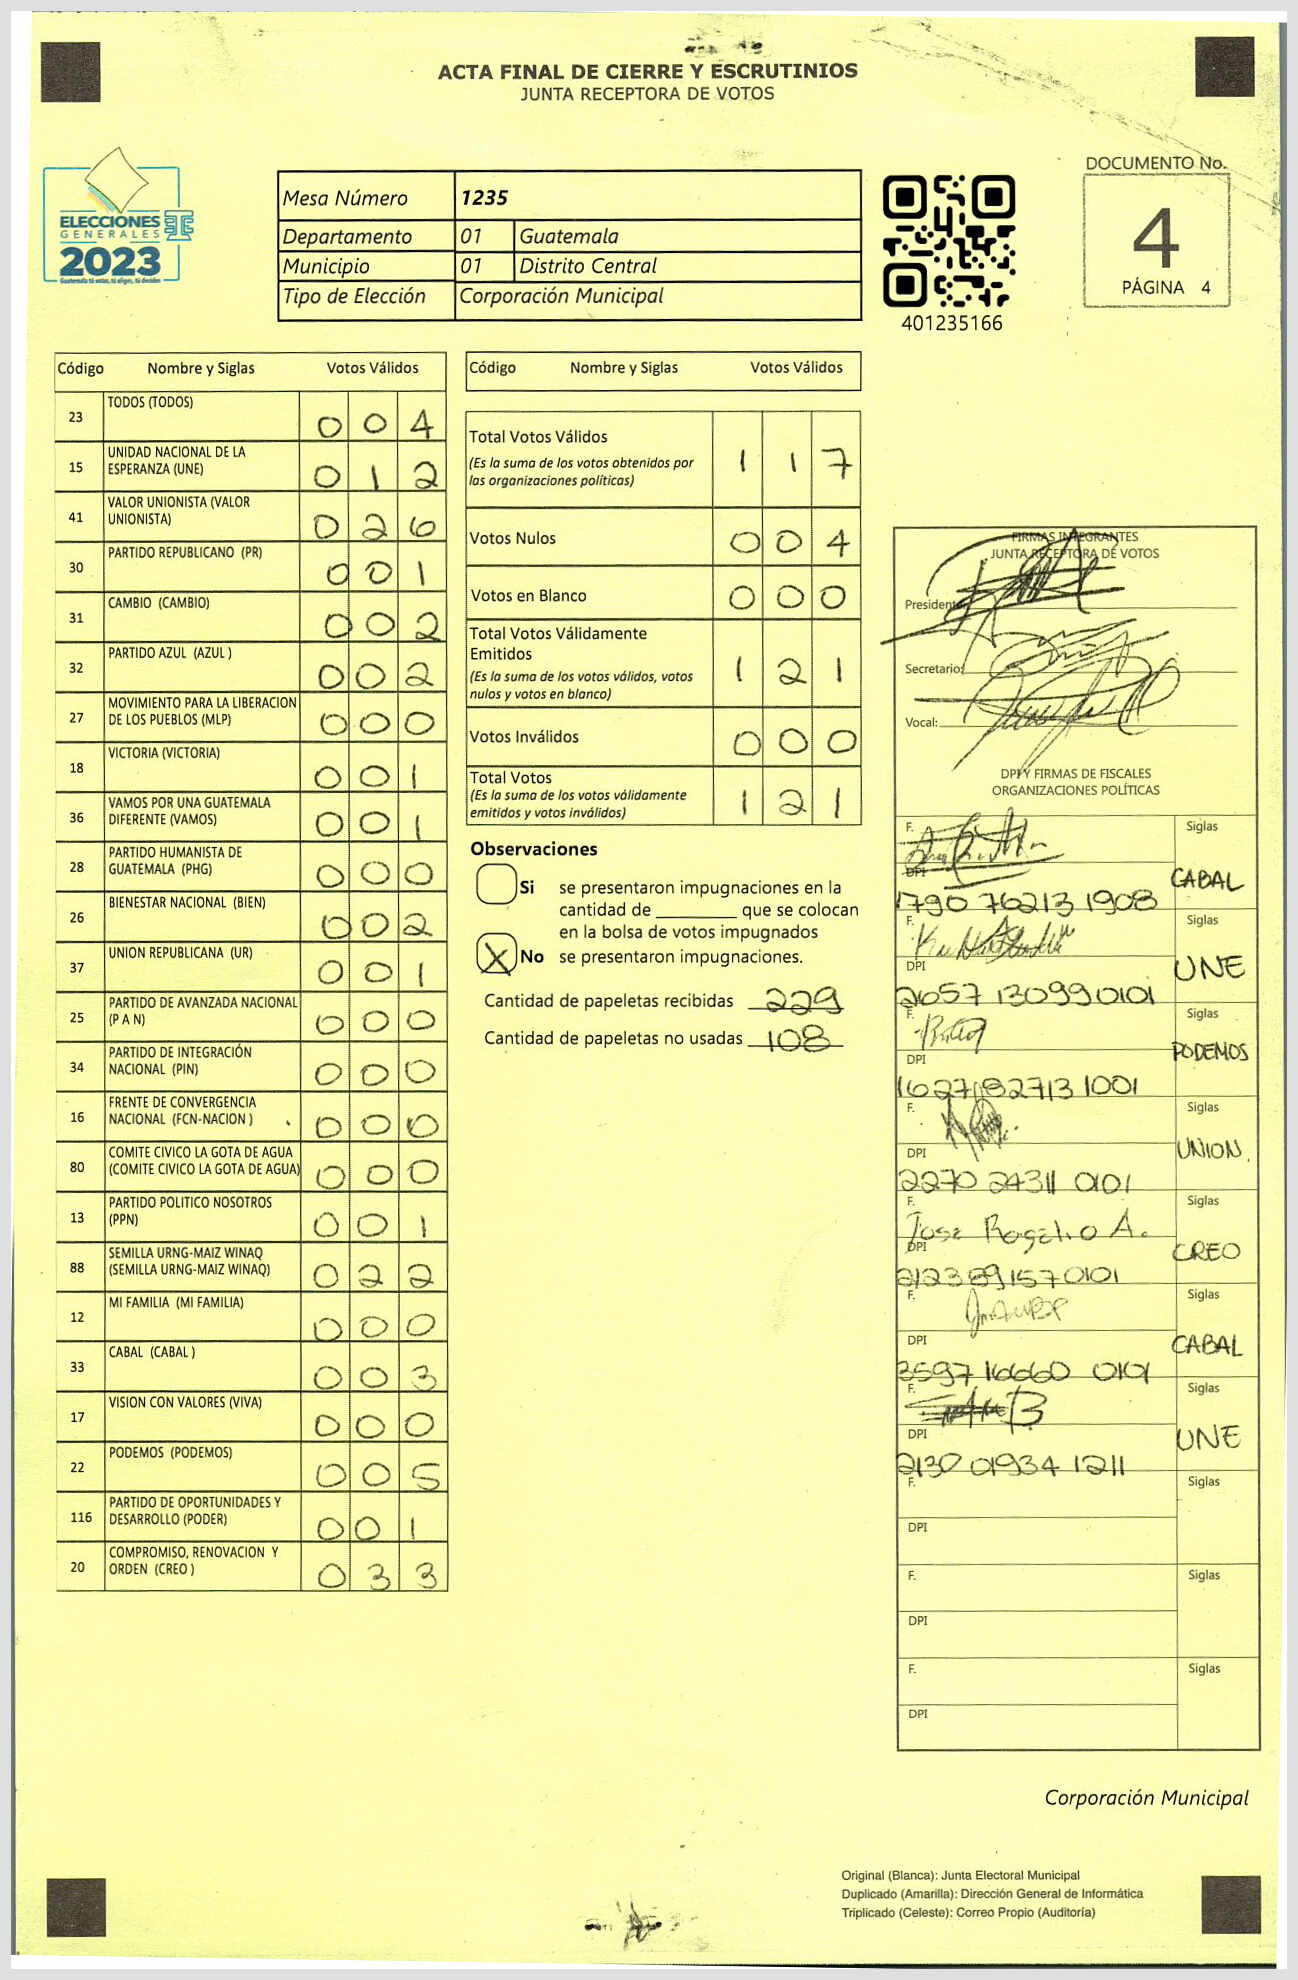 ACTA FINAL DE CIERRE Y ESCRUTINIOS
JUNTA RECEPTORA DE VOTOS
ELECCIONES
GENERALES
2023
Guatemala tú votas, tú eliges, tú decides
Mesa Número 1235
Departamento 01 Guatemala
Municipio 01 Distrito Central
Tipo de Elección Corporación Municipal
401235166
DOCUMENTO No.
4
PÁGINA 4
Código Nombre y Siglas Votos Válidos
23 TODOS (TODOS) 0 0 4
15 UNIDAD NACIONAL DE LA
ESPERANZA (UNE) 0 1 2
41 VALOR UNIONISTA (VALOR
UNIONISTA) 0 2 6
30 PARTIDO REPUBLICANO (PR) 0 0 1
31 CAMBIO (CAMBIO) 0 0 2
32 PARTIDO AZUL (AZUL ) 0 0 2
27 MOVIMIENTO PARA LA LIBERACION
DE LOS PUEBLOS (MLP) 0 0 0
18 VICTORIA (VICTORIA) 0 0 1
36 VAMOS POR UNA GUATEMALA
DIFERENTE (VAMOS) 0 0 1
28 PARTIDO HUMANISTA DE
GUATEMALA (PHG) 0 0 0
26 BIENESTAR NACIONAL (BIEN) 0 0 2
37 UNION REPUBLICANA (UR) 0 0 1
25 PARTIDO DE AVANZADA NACIONAL
(P A N) 0 0 0
34 PARTIDO DE INTEGRACIÓN
NACIONAL (PIN) 0 0 0
16 FRENTE DE CONVERGENCIA
NACIONAL (FCN-NACION ) 0 0 0
80 COMITE CIVICO LA GOTA DE AGUA
(COMITE CIVICO LA GOTA DE AGUA) 0 0 0
13 PARTIDO POLITICO NOSOTROS
(PPN) 0 0 1
88 SEMILLA URNG-MAIZ WINAQ
(SEMILLA URNG-MAIZ WINAQ) 0 2 2
12 MI FAMILIA (MI FAMILIA) 0 0 0
33 CABAL (CABAL ) 0 0 3
17 VISION CON VALORES (VIVA) 0 0 0
22 PODEMOS (PODEMOS) 0 0 5
116 PARTIDO DE OPORTUNIDADES Y
DESARROLLO (PODER) 0 0 1
20 COMPROMISO, RENOVACION Y
ORDEN (CREO ) 0 3 3
Código Nombre y Siglas Votos Válidos
Total Votos Válidos
(Es la suma de los votos obtenidos por
las organizaciones políticas) 1 1 7
Votos Nulos 0 0 4
Votos en Blanco 0 0 0
Total Votos Válidamente
Emitidos
(Es la suma de los votos válidos, votos
nulos y votos en blanco) 1 2 1
Votos Inválidos 0 0 0
Total Votos
(Es la suma de los votos válidamente
emitidos y votos inválidos) 1 2 1
Observaciones
Si se presentaron impugnaciones en la
cantidad de ________ que se colocan
en la bolsa de votos impugnados
X No se presentaron impugnaciones.
Cantidad de papeletas recibidas 229
Cantidad de papeletas no usadas 108
FIRMAS INTEGRANTES
JUNTA RECEPTORA DE VOTOS
Presidente:
Secretario:
Vocal:
DPI Y FIRMAS DE FISCALES
ORGANIZACIONES POLÍTICAS
F. Siglas
DPI CABAL
1790 76213 1908
F. Siglas
DPI UNE
2657 13099 0101
F. Siglas
DPI PODEMOS
1627 82713 1001
F. Siglas
DPI UNION.
2270 24311 0101
F. Jose Rogelio A. Siglas
DPI CREO
2123 89157 0101
F. Siglas
DPI CABAL
3597 16660 0101
F. Siglas
DPI UNE
2130 01934 1211
F. Siglas
DPI
F. Siglas
DPI
F. Siglas
DPI
Corporación Municipal
Original (Blanca): Junta Electoral Municipal
Duplicado (Amarilla): Dirección General de Informática
Triplicado (Celeste): Correo Propio (Auditoría)